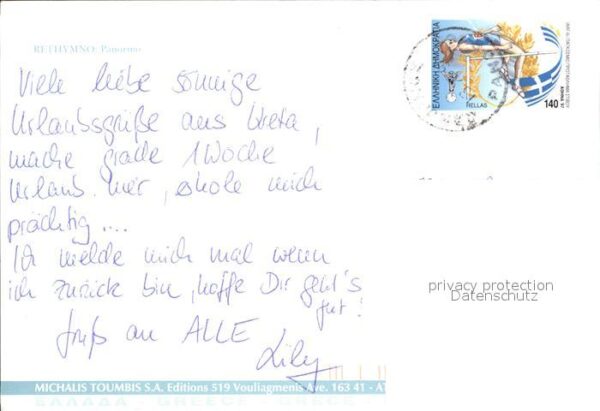 RETHYMNO: Panormo
Viele liebe sonnige
Urlaubsgrüße aus Kreta,
mache grade 1 Woche
Urlaub hier, erhole mich
prächtig....
Ich melde mich mal wenn
ich zurück bin, hoffe Dir geht's
gut!
Gruß an ALLE
Lily
ΕΛΛΗΝΙΚΗ ΔΗΜΟΚΡΑΤΙΑ
HELLAS
140
privacy protection
Datenschutz
MICHALIS TOUMBIS S.A. Editions 519 Vouliagmenis Ave. 163 41 - AT
ΕΛΛΑΔΑ - GREECE - GRECE